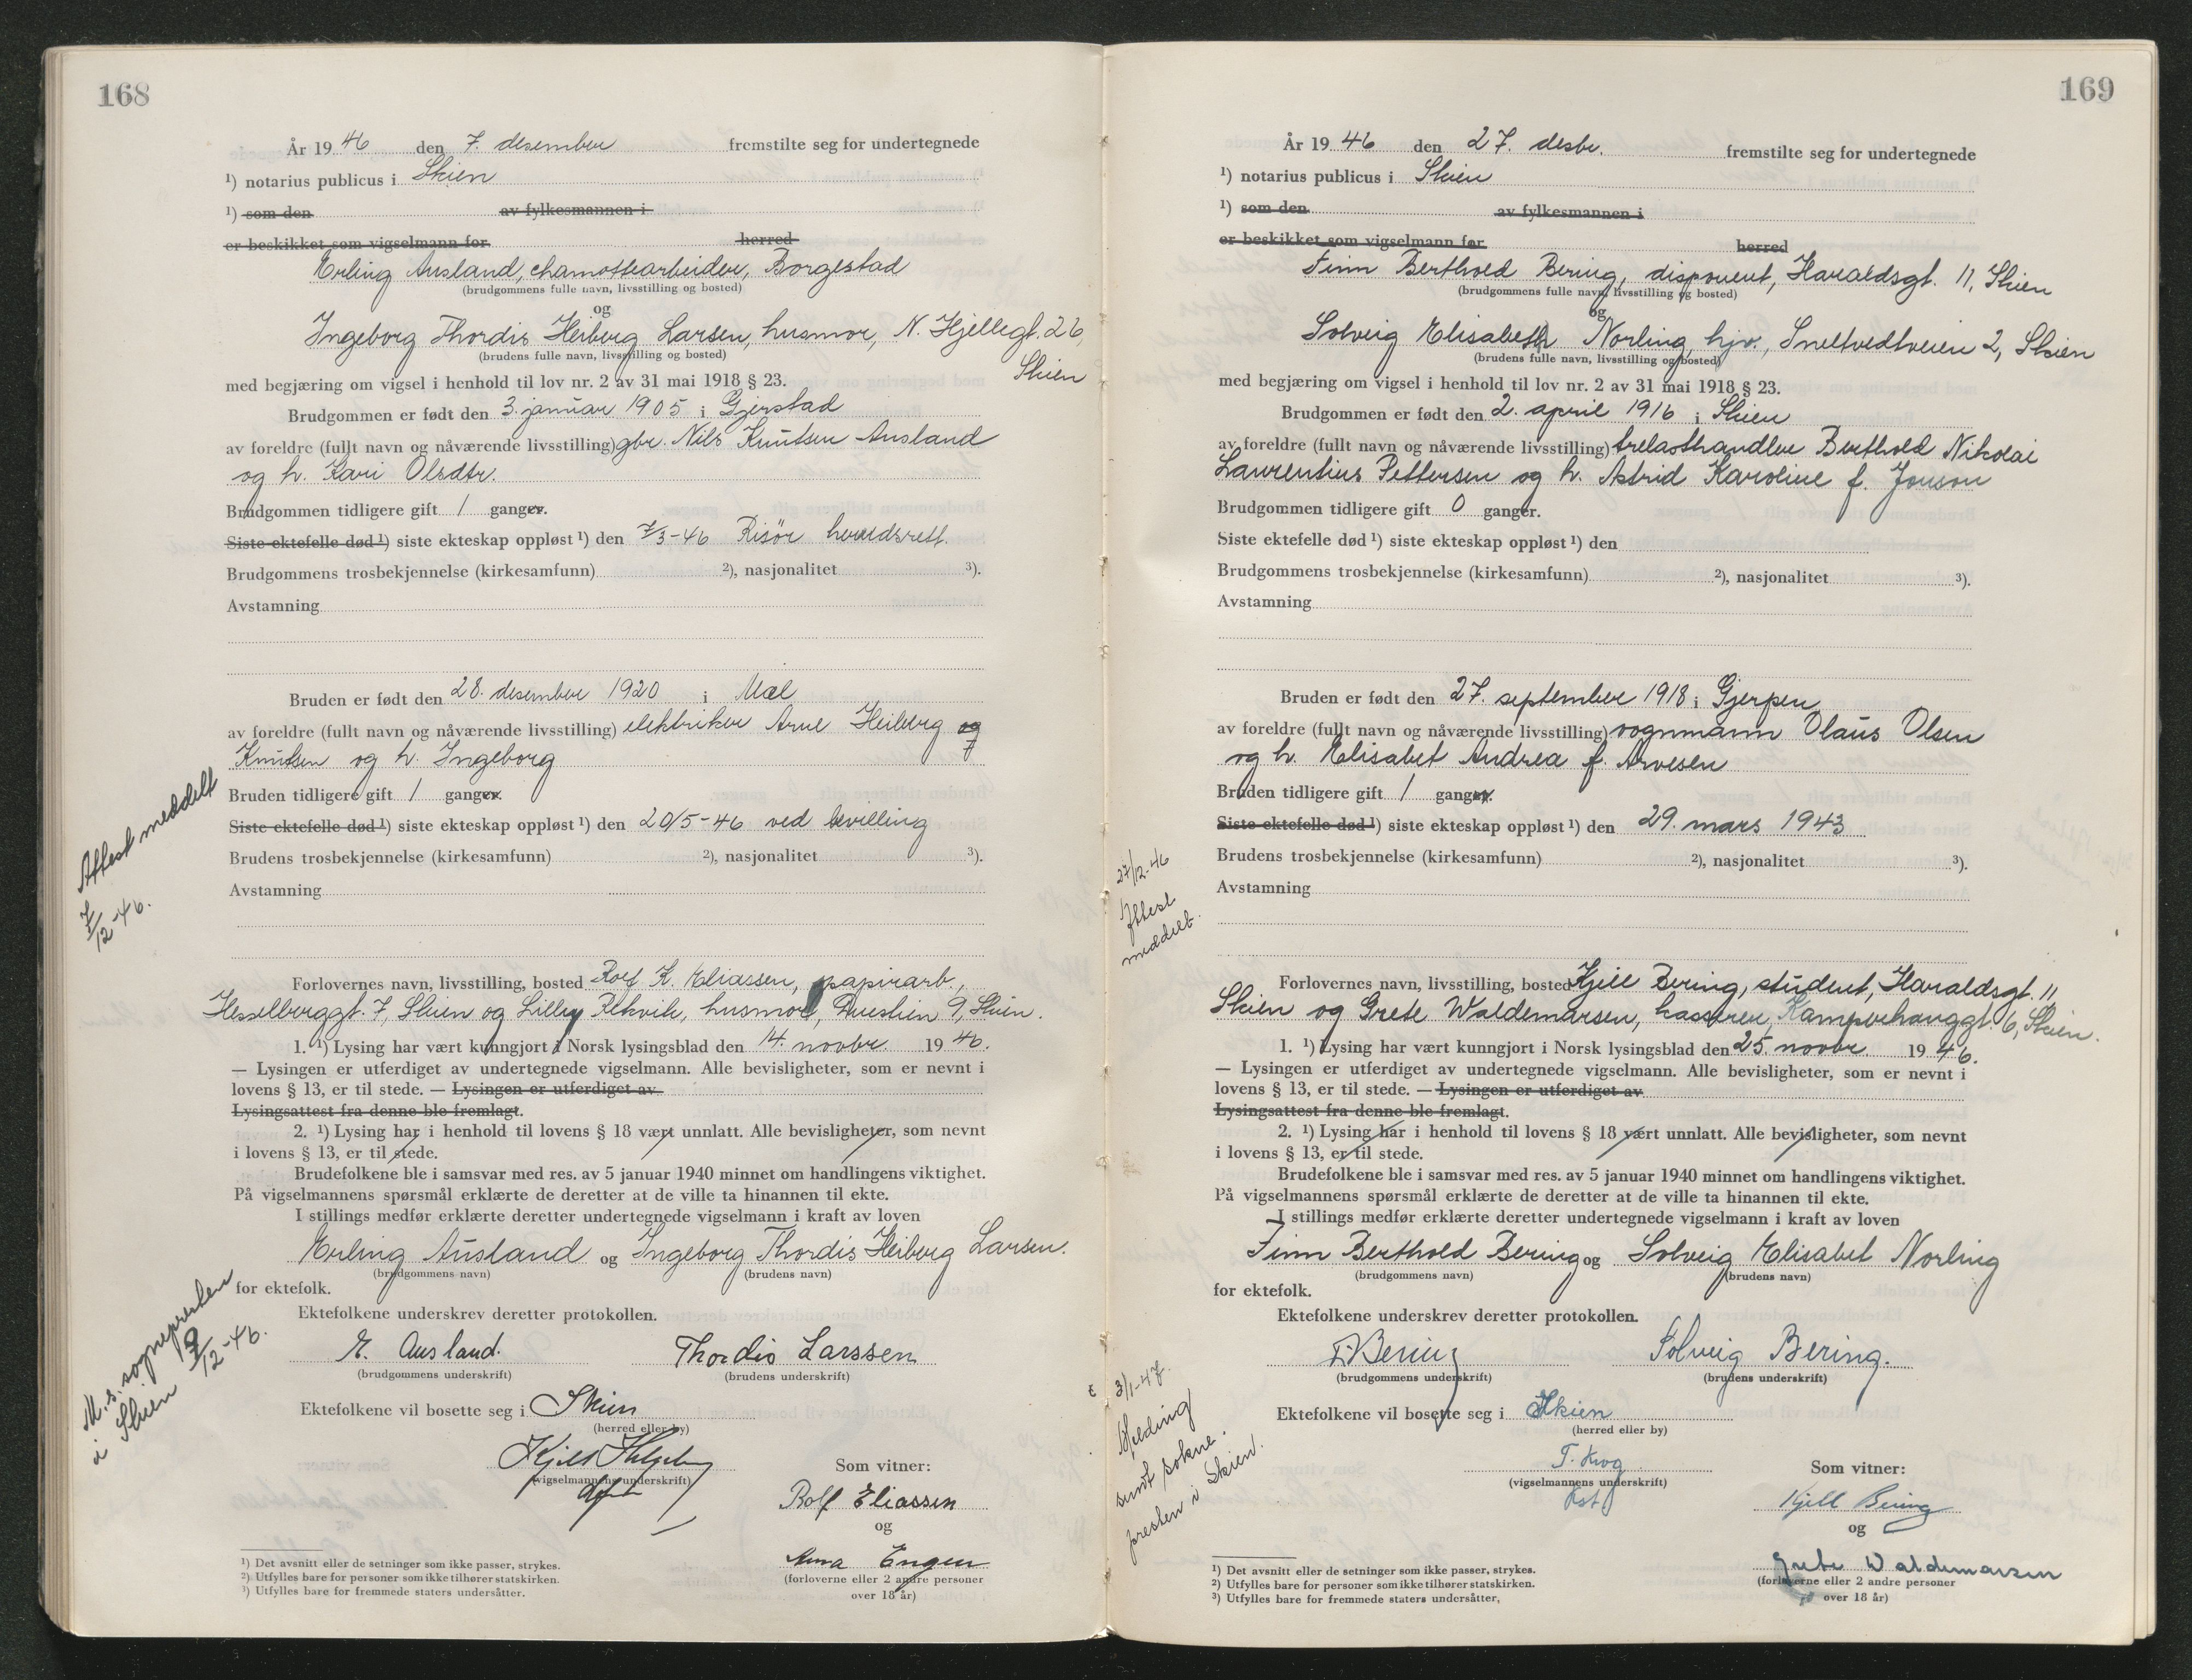 168
År 19 46 den 7. desember fremstilte seg for undertegnede
¹) notarius publicus i Skien
¹) som den av fylkesmannen i
er beskikket som vigselmann for herred
Erling Ausland, chamottearbeider, Borgestad
(brudgommens fulle navn, livsstilling og bosted)
og
Ingeborg Thordis Heiberg Larsen, husmor, N. Hjellegt. 26,
(brudens fulle navn, livsstilling og bosted)
Skien
med begjæring om vigsel i henhold til lov nr. 2 av 31 mai 1918 § 23.
Brudgommen er født den 3. januar 1905 i Gjerstad
av foreldre (fullt navn og nåværende livsstilling) gbr. Nils Knutsen Ausland
og h. Kari Olsdtr.
Brudgommen tidligere gift 1 ganger.
Siste ektefelle død ¹) siste ekteskap oppløst ¹) den 7/3-46 Risör herredsrett.
Brudgommens trosbekjennelse (kirkesamfunn) ²), nasjonalitet ³).
Avstamning
Bruden er født den 28. desember 1920 i Mæl
av foreldre (fullt navn og nåværende livsstilling) elektriker Arne Heiberg og
Knutsen og h. Ingeborg
Bruden tidligere gift 1 ganger.
Siste ektefelle død ¹) siste ekteskap oppløst ¹) den 20/5-46 ved bevilling
Brudens trosbekjennelse (kirkesamfunn) ²), nasjonalitet ³).
Avstamning
Attest meddelt
7/12-46.
Forlovernes navn, livsstilling, bosted Rolf K. Eliassen, papirarb.,
Hesselberggt. 7, Skien og Lilly Rekvik, husmor, 9, Skien.
1. ¹) Lysing har vært kunngjort i Norsk lysingsblad den 14. novbr. 19 46.
— Lysingen er utferdiget av undertegnede vigselmann. Alle bevisligheter, som er nevnt i
lovens § 13, er til stede. — Lysingen er utferdiget av
Lysingsattest fra denne ble fremlagt.
2. ¹) Lysing har i henhold til lovens § 18 vært unnlatt. Alle bevisligheter, som nevnt
i lovens § 13, er til stede.
Brudefolkene ble i samsvar med res. av 5 januar 1940 minnet om handlingens viktighet.
På vigselmannens spørsmål erklærte de deretter at de ville ta hinannen til ekte.
I stillings medfør erklærte deretter undertegnede vigselmann i kraft av loven
Erling Ausland og Ingeborg Thordis Heiberg Larsen.
(brudgommens navn) (brudens navn)
for ektefolk.
Ektefolkene underskrev deretter protokollen.
E. Ausland. Thordis Larssen
(brudgommens underskrift) (brudens underskrift)
M. s. sognepresten
i Skien 9/12-46.
Ektefolkene vil bosette seg i Skien
(herred eller by)
(vigselmannens underskrift)
Som vitner:
Rolf Eliassen
og
Anna Engen
(forloverne eller 2 andre personer
over 18 år)
¹) Det avsnitt eller de setninger som ikke passer, strykes.
²) Utfylles bare for personer som ikke tilhører statskirken.
³) Utfylles bare for fremmede staters undersåtter.
169
År 19 46 den 27. desbr. fremstilte seg for undertegnede
¹) notarius publicus i Skien
¹) som den av fylkesmannen i
er beskikket som vigselmann for herred
Finn Berthold Bering, disponent, Haraldsgt. 11, Skien
(brudgommens fulle navn, livsstilling og bosted)
og
Solveig Elisabeth Norling, hjv., Sneltvedtveien 2, Skien
(brudens fulle navn, livsstilling og bosted)
med begjæring om vigsel i henhold til lov nr. 2 av 31 mai 1918 § 23.
Brudgommen er født den 2. april 1916 i Skien
av foreldre (fullt navn og nåværende livsstilling) trelasthandler Berthold Nikolai
Laurentius Pettersen og h. Astrid Karoline f. Jonson
Brudgommen tidligere gift 0 ganger.
Siste ektefelle død ¹) siste ekteskap oppløst ¹) den
Brudgommens trosbekjennelse (kirkesamfunn) ²), nasjonalitet ³).
Avstamning
Bruden er født den 27. september 1918 i Gjerpen
av foreldre (fullt navn og nåværende livsstilling) vognmann Olaus Olsen
og h. Elisabet Andrea f. Arvesen
Bruden tidligere gift 1 ganger.
Siste ektefelle død ¹) siste ekteskap oppløst ¹) den 29. mars 1943
Brudens trosbekjennelse (kirkesamfunn) ²), nasjonalitet ³).
Avstamning
27/12-46
Attest
meddelt.
Forlovernes navn, livsstilling, bosted Kjell Bering, student, Haraldsgt. 11,
Skien og Grete Waldemarsen, kasserer, Kamperhauggt. 6, Skien.
1. ¹) Lysing har vært kunngjort i Norsk lysingsblad den 25. novbr. 19 46.
— Lysingen er utferdiget av undertegnede vigselmann. Alle bevisligheter, som er nevnt i
lovens § 13, er til stede. — Lysingen er utferdiget av
Lysingsattest fra denne ble fremlagt.
2. ¹) Lysing har i henhold til lovens § 18 vært unnlatt. Alle bevisligheter, som nevnt
i lovens § 13, er til stede.
Brudefolkene ble i samsvar med res. av 5 januar 1940 minnet om handlingens viktighet.
På vigselmannens spørsmål erklærte de deretter at de ville ta hinannen til ekte.
I stillings medfør erklærte deretter undertegnede vigselmann i kraft av loven
Finn Berthold Bering og Solveig Elisabet Norling
(brudgommens navn) (brudens navn)
for ektefolk.
Ektefolkene underskrev deretter protokollen.
F. Bering Solveig Bering.
(brudgommens underskrift) (brudens underskrift)
3/1-47.
Melding
sendt sokne-
presten i Skien.
Ektefolkene vil bosette seg i Skien
(herred eller by)
T. Krog
(vigselmannens underskrift)
Som vitner:
Kjell Bering
og
Grete Waldemarsen
(forloverne eller 2 andre personer
over 18 år)
¹) Det avsnitt eller de setninger som ikke passer, strykes.
²) Utfylles bare for personer som ikke tilhører statskirken.
³) Utfylles bare for fremmede staters undersåtter,